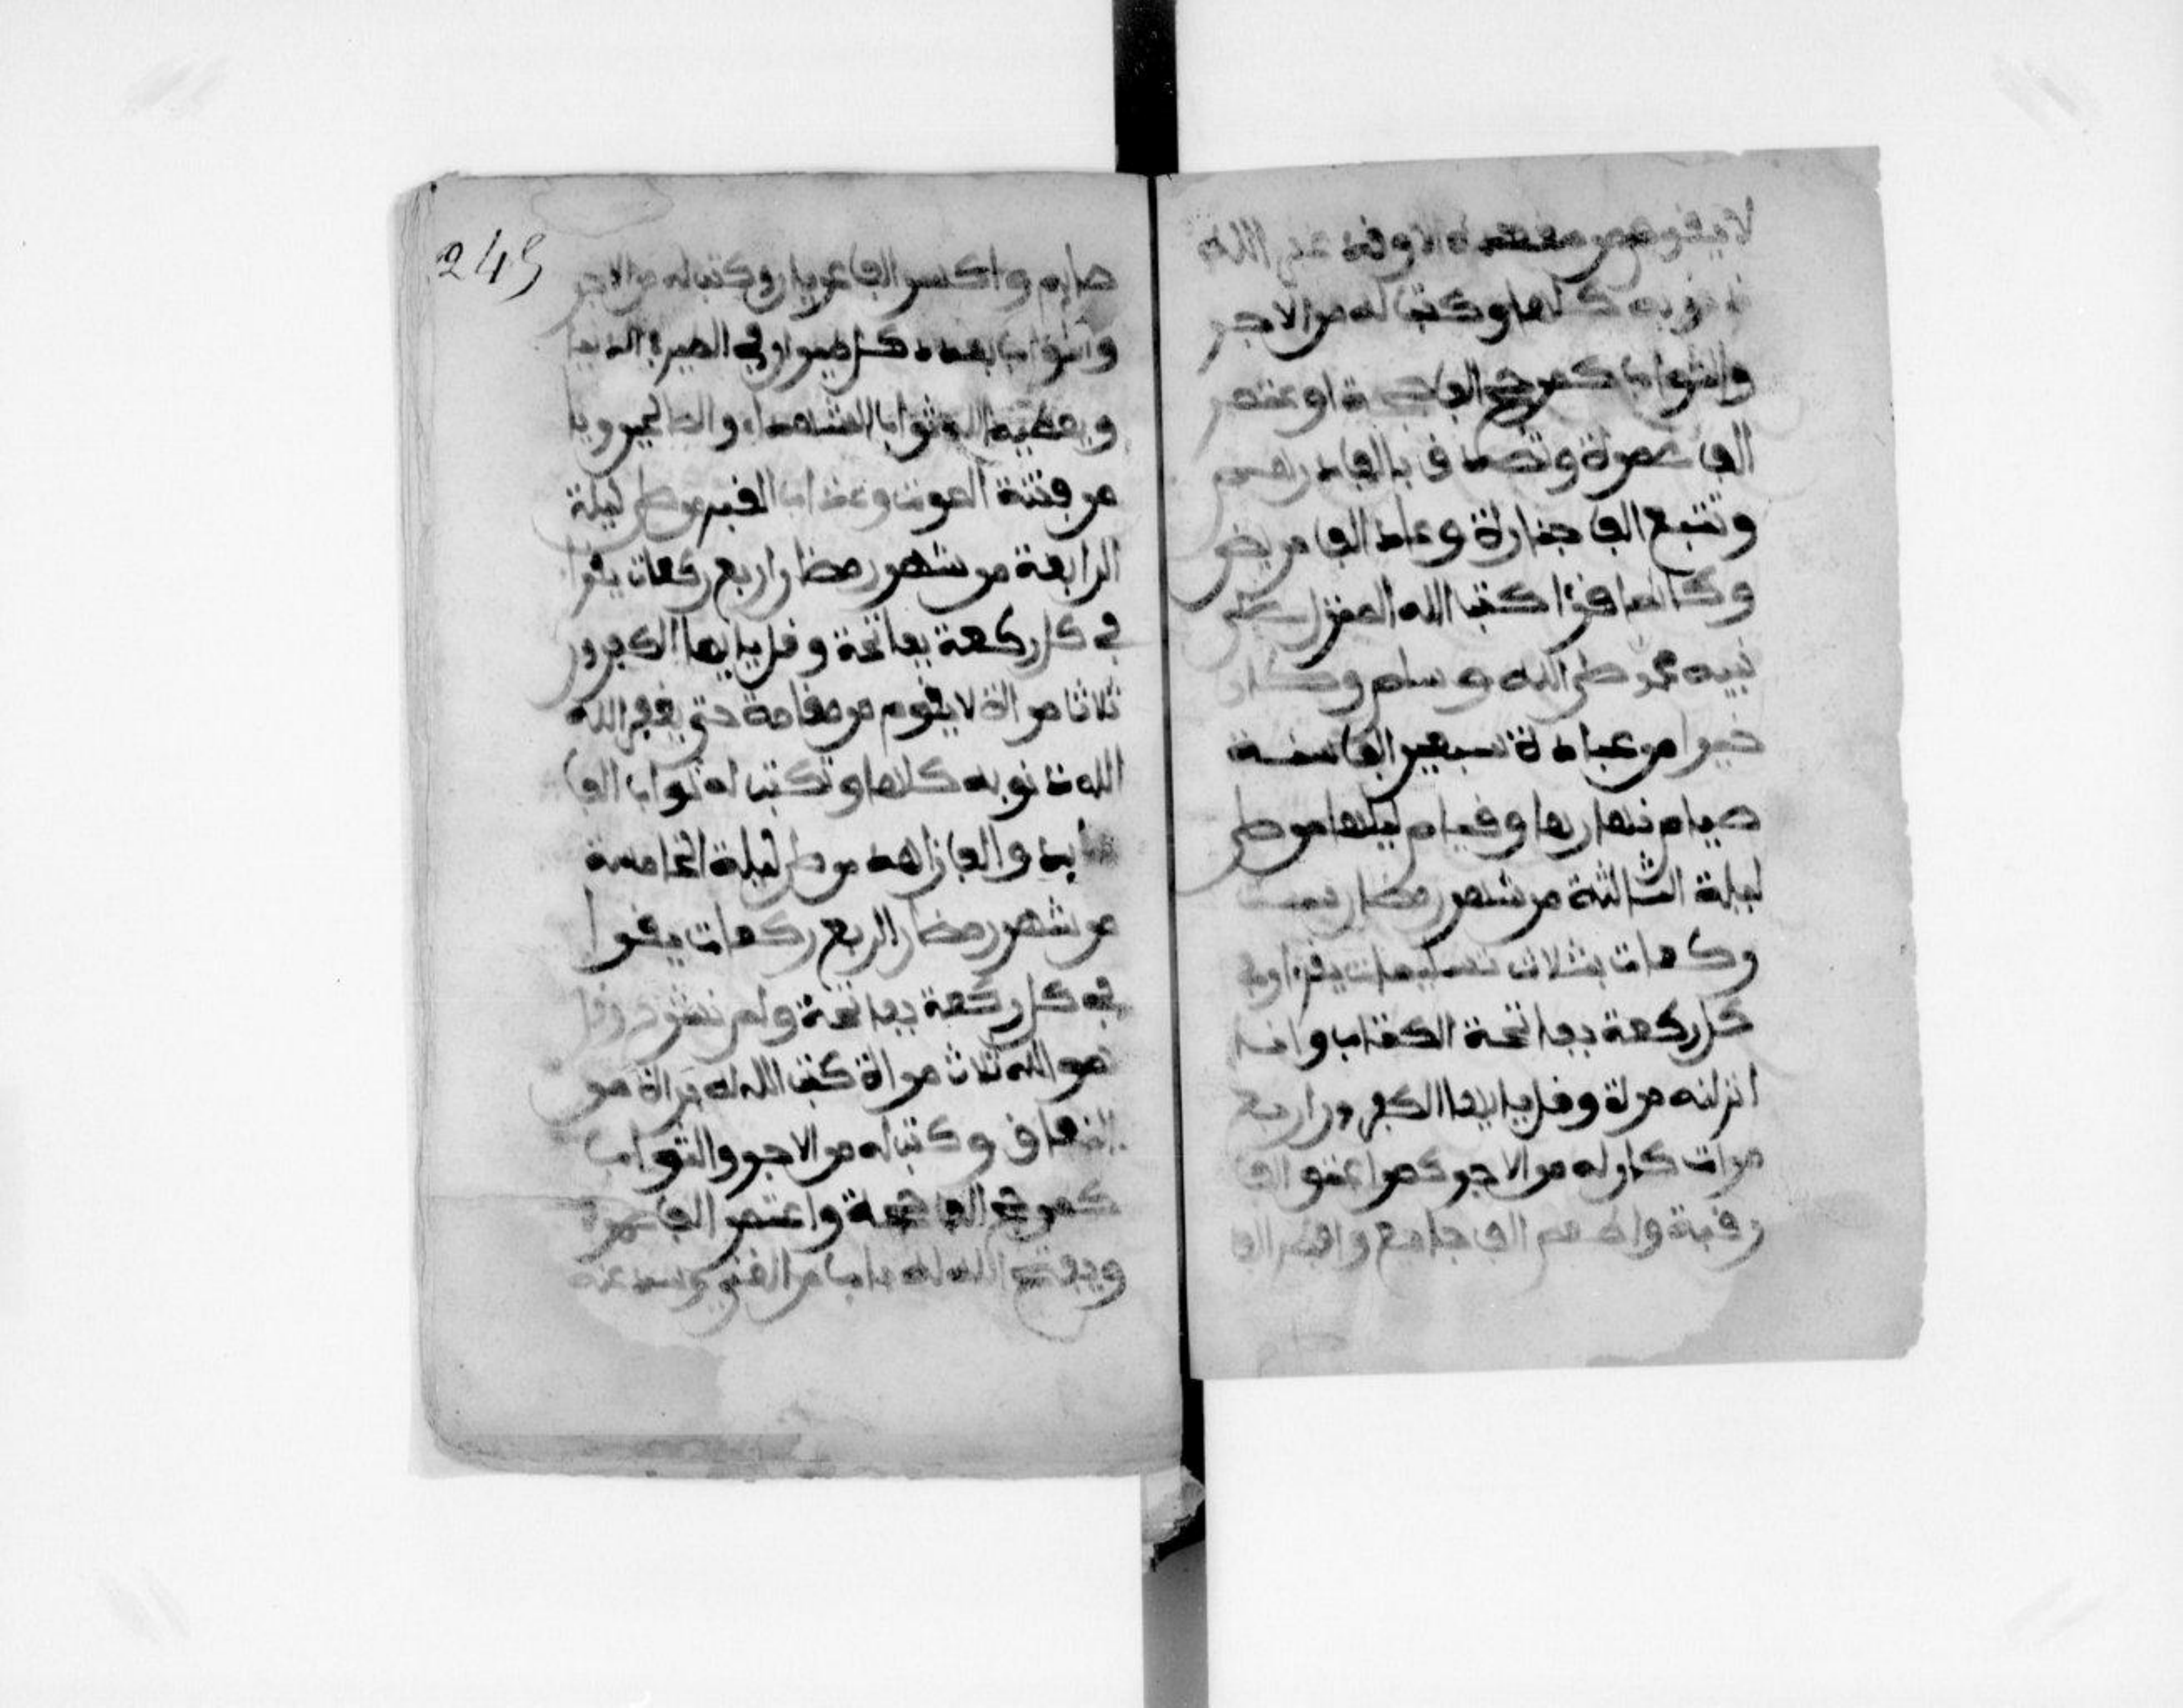 لا يقوم من مقعده الا وقد غفر الله
ذنوبه كلها وكتب له من الاجر
والثواب كمن حج الف حجة او عتمر
الف عمرة وتصدق بالف درهم
وتتبع الف جنازة وعاد الف مريض
وكانما قرا كتب الله المنزل على
نبيه محمد صلى الله وسلم وكان
خيرا من عبادة سبعين الف سنة
صيام نهارها وقيام ليلها من صلى
ليلة الثالثة من شهر رمضان ست
ركعات بثلاث تسليمات يقرا في
كل ركعة بفاتحة الكتاب وانا
انزلنه مرة وقل يا ايها الكفرون اربع
مرات كان له من الاجر كمن اعتق الف
رقبة واطعم الف جامع وافطر الف
صايم
249
صايم واكسى الف عريان وكتب له من الاجر
والثواب بعدد كل في الدنيا
ويعطيه الله ثواب الشهداء والصالحين
من فتنة الموت وعذاب القبر من صلى ليلة
الرابعة من شهر رمضان اربع ركعات يقرا
في كل ركعة بفاتحة وقل يا ايها الكفرون
ثلاثا مراة لا يقوم من مقامه حتى يغفر الله
الله ذنوبه كلها وتكتب له ثواب الف
عابد والف زاهد من صلى ليلة الخامسة
من شهر رمضان اربع ركعات يقرا
في كل ركعة بفاتحة والم نشرح وقل
هو الله ثلاث مراة كتب الله له براة من
النفاق وكتب له من الاجر والثواب
كمن حج الف حجة واعتمر الف عمرة
ويفتح الله له بابا من الغنى